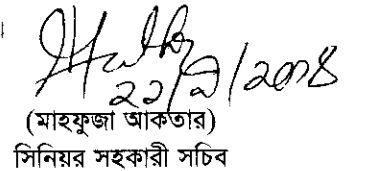 ২২/৯/২০১৪
(মাহফুজা আকতার)
সিনিয়র সহকারী সচিব